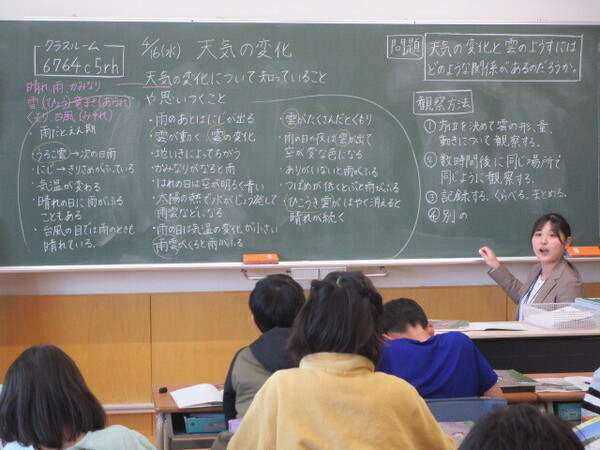 クラスルーム
6764c5rh
4/16(水) 天気の変化
晴れ、雨、かみなり
雪(ひょう)雲まさ(あられ)
くもり、台風(みぞれ)
天気の変化について知っていること
や思いつくこと
・雨だとえん期
・うろこ雲→次の日雨
・にじ→さりさめがふっている
・気温が変わる
・晴れの日に雨がふる
こともある
・台風の目では雨のときも
晴れている。
・雨のあとはにじが出る
・雲が動く→雲の変化
・地いきによってちがう
・かみなりがなると雨
・はれの日は空が明るく青い
・太陽の熱で水がじょう発して
雨雲などになる
・雨の日は気温の変化が小さい
・雨雲がくると雨がふる
・雲がたくさんだとくもり
・雨の日の夜は雲が出て
空が変な色になる
・ありがいないと雨がふる
・つばめが低くとぶと雨がふる
・ひこうき雲がはやく消えると
晴れが続く
問題
天気の変化と雲のようすには
どのような関係があるのだろうか。
観察方法
①方位を決めて雲の形、量、
動きについて観察する。
②数時間後に同じ場所で
同じように観察する。
③記録する、くらべる、まとめる。
④別の